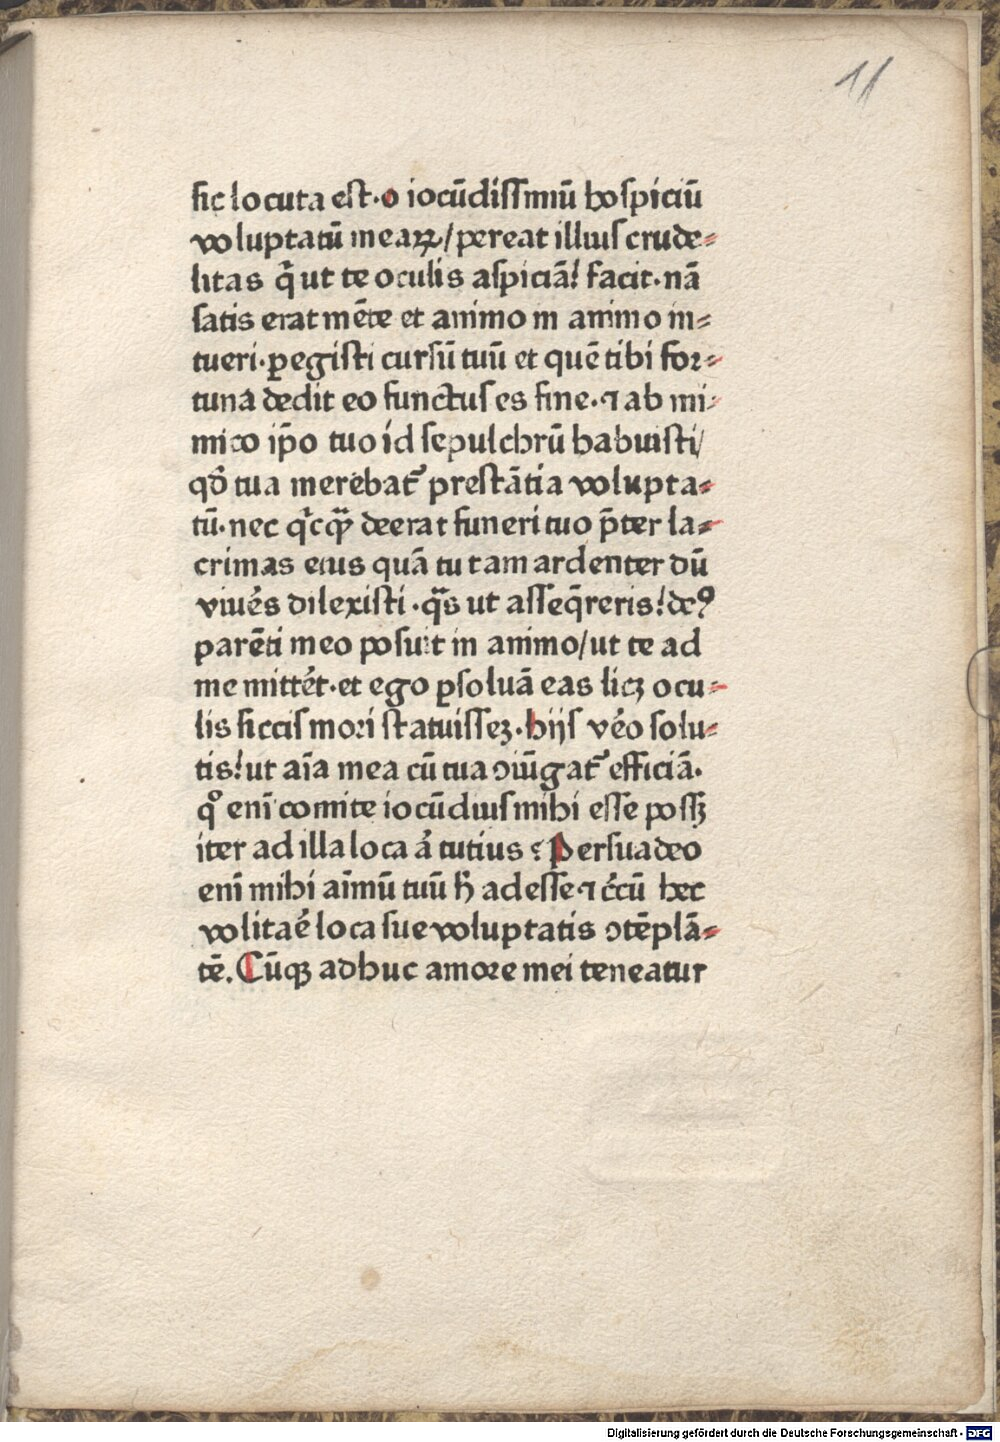 11
sic locuta est·o iocūdissimū hospiciū
voluptatū meaꝝ/pereat illius crude⸗
litas q̄ ut te oculis aspiciā! facit·nā
satis erat mēte et animo in animo in⸗
tueri·ꝑegisti cursū tuū et quē tibi for⸗
tuna dedit eo functus es fine·⁊ ab ini⸗
mico ip̄o tuo id sepulchrū habuisti/
qd̄ tua merebat᷑ prestātia volupta⸗
tū·nec qͥcqᷓ deerat funeri tuo p̄ter la⸗
crimas eius quā tu tam ardenter dū
viuēs dilexisti·qᷓs ut asseq̄reris!deꝰ
parēti meo posuit in animo/ut te ad
me mittēt·et ego ꝑsoluā eas licꝫ ocu⸗
lis siccis mori statuisseꝫ·hijs vēo solu⸗
tis!ut aīa mea cū tua ↄiūgat᷑ efficiā·
qͦ enī comite iocūdius mihi esse possꝫ
iter ad illa loca ā tutius ? Persuadeo
enī mihi aīmū tuū h̄ adesse·⁊ c̄cū hec
volitaē loca sue voluptatis ↄtēplā⸗
tē. Cūqꝫ adhuc amore mei teneatur
Digitalisierung gefördert durch die Deutsche Forschungsgemeinschaft - DFG